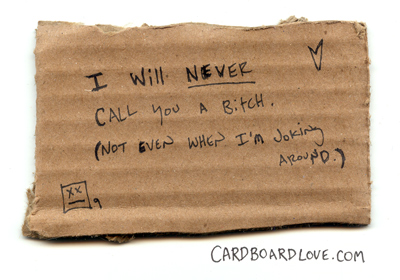 I Will NEVER
CALL YOU A BitCH.
(NOT EVEN WHEN I'M JOKING
AROUND.)
CARDBOARDLOVE.COM